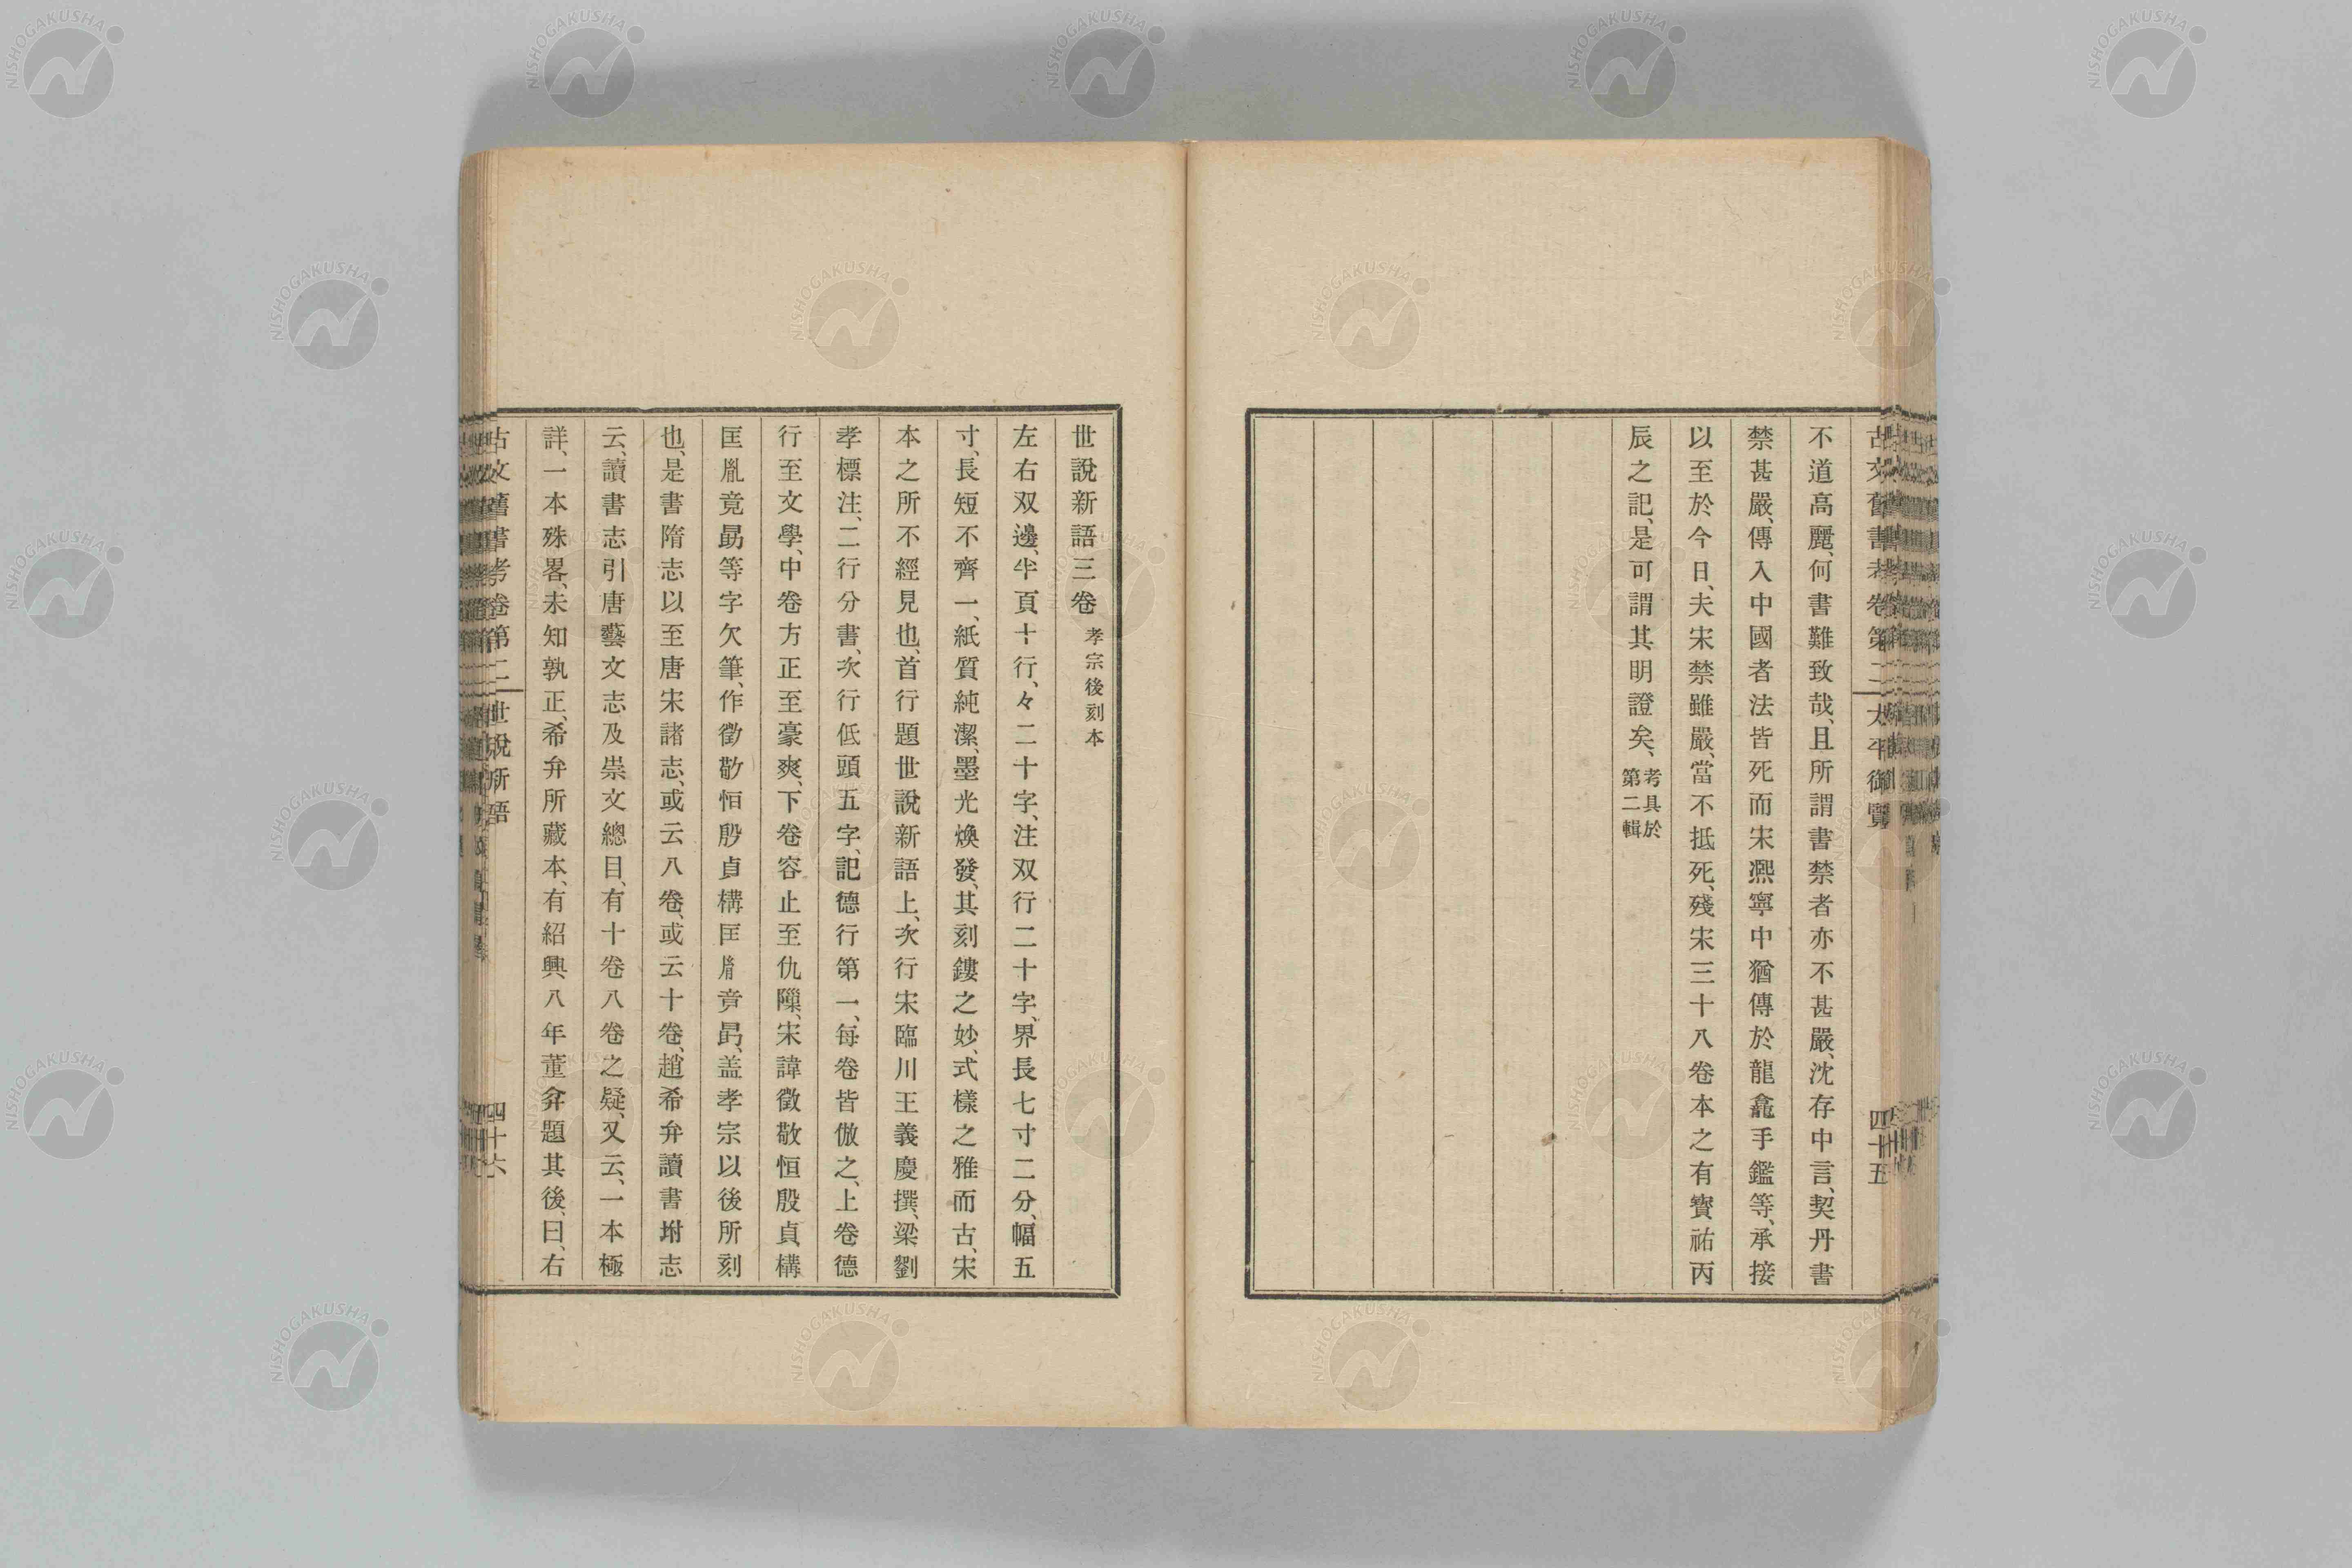 古文舊書考卷第二 太平御覽 四十五
不道高麗、何書難致哉、且所謂書禁者亦不甚嚴、沈存中言、契丹書
禁甚嚴、傳入中國者法皆死而宋熈寧中猶傳於龍龕手鑑等、承接
以至於今日、夫宋禁雖嚴、當不抵死、殘宋三十八卷本之有寳祐丙
辰之記、是可謂其明證矣、考具於第二輯
世說新語三卷 孝宗後刻本
左右双邊、半頁十行、々二十字、注双行二十字、界長七寸二分、幅五
寸、長短不齊一、紙質純潔、墨光煥發、其刻鏤之妙、式樣之雅而古、宋
本之所不經見也、首行題世說新語上、次行宋臨川王義慶撰、梁劉
孝標注、二行分書、次行低頭五字、記德行第一、每卷皆倣之、上卷德
行至文學、中卷方正至豪爽、下卷容止至仇隟、宋諱徵敬恒殷貞構
匡胤竟勗等字欠筆、作徵敬恒殷貞構匡胤竟勗、盖孝宗以後所刻
也、是書隋志以至唐宋諸志、或云八卷、或云十卷、趙希弁讀書坿志
云、讀書志引唐藝文志及崇文總目、有十卷八卷之疑、又云、一本極
詳、一本殊畧、未知孰正、希弁所藏本、有紹興八年董弅題其後、曰、右
古文舊書考卷第二 世說新語 四十六
NISHOGAKUSHA